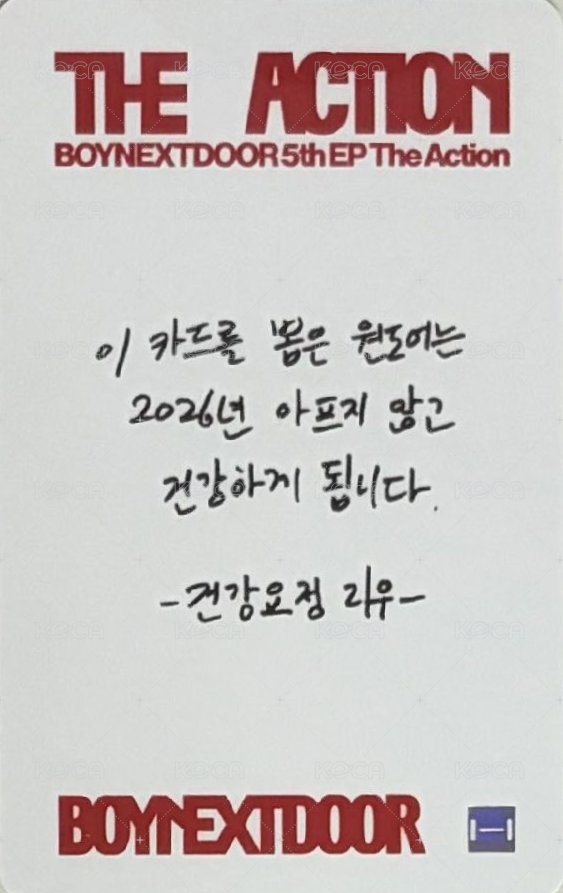 THE ACTION
BOYNEXTDOOR 5th EP The Action
이 카드를 뽑은 원도어는
2026년 아프지 않고
건강하게 됩니다.
-건강요정 리우-
BOYNEXTDOOR